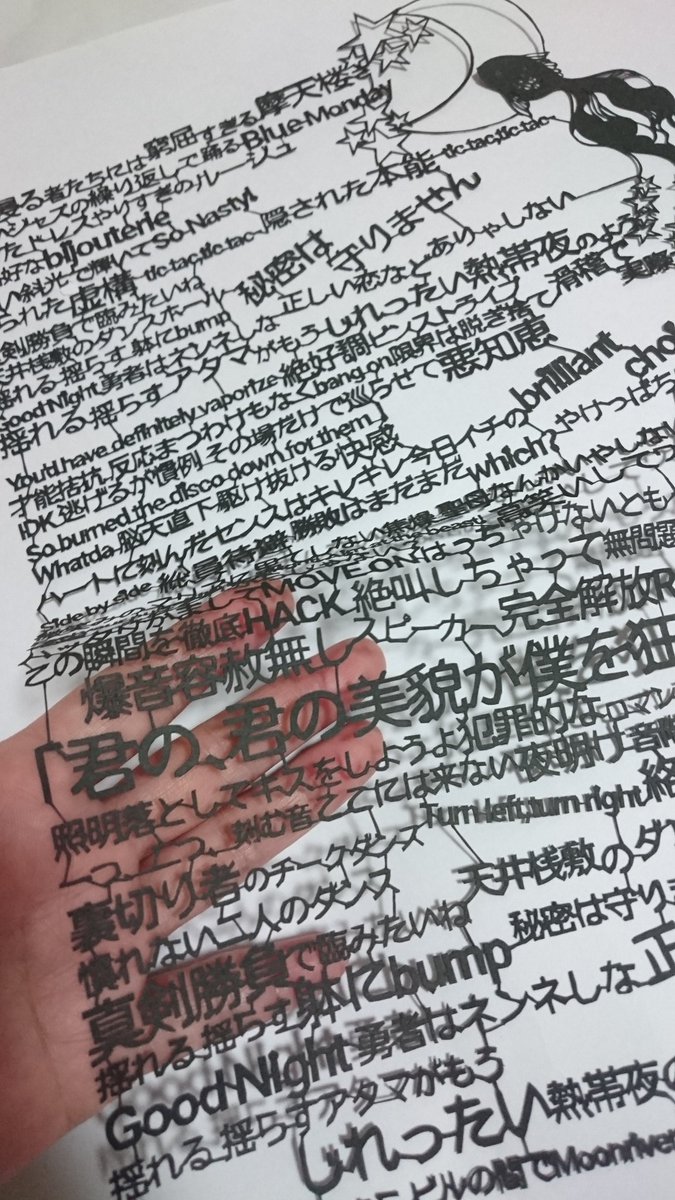 る者たちには窮屈すぎる摩天楼
ジャズの繰り返しで踊るBlue Monday
たドレスやりすぎのルージュ
好なbijouterie
い斜光で輝いてSo Nasty!
られた虚構 tic,tac,tic,tac 隠された本能 tic,tac,tic,tac
剣勝負で臨みたいね
天井桟敷のダンスホール 秘密は守りません
揺れる 揺らす 躰にbump
Good Night勇者はネンネしな 正しい恋などありゃしない
揺れる 揺らすアタマがもうじれったい熱帯夜のよう
You'd have definitely vaporize 絶好調ピンストライプ 滑落で
才能拮抗 反応まつわけもなくbang on限界は脱ぎ捨て
IDK 逃げるが慣例 その場だけで巡らせて悪知恵
So burned the disco down for them
Whatda 脳天直下 駆け抜ける快感
ハートに刻んだセンスはキレキレ今日イチのbrilliant
side by side 総員待避 勝敗はまだまだwhich? やけっぱち
MOVE ON はっちゃけないとも
この瞬間を徹底HACK 絶叫しちゃって 無問題
爆音容赦無しスピーカー 完全解放
「君の、君の美貌が僕を狂
照明落としてキスをしようよ犯罪的な
刻む音 ここには来ない夜明け 音
裏切り者のチークダンス Turn left,turn right
慣れない二人のダンス 天井桟敷のダ
真剣勝負で臨みたいね
揺れる 揺らす躰にbump 秘密は守り
Good Night勇者はネンネしな正
揺れる 揺らすアタマがもう
じれったい熱帯夜の
ビルの間でMoonriver